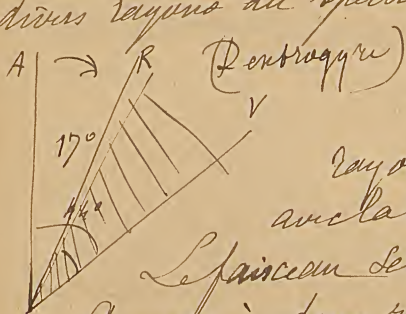 divers rayons du
A R (Dextrogyre)
V
17°
44°
rayo
avec la
Le faisceau se